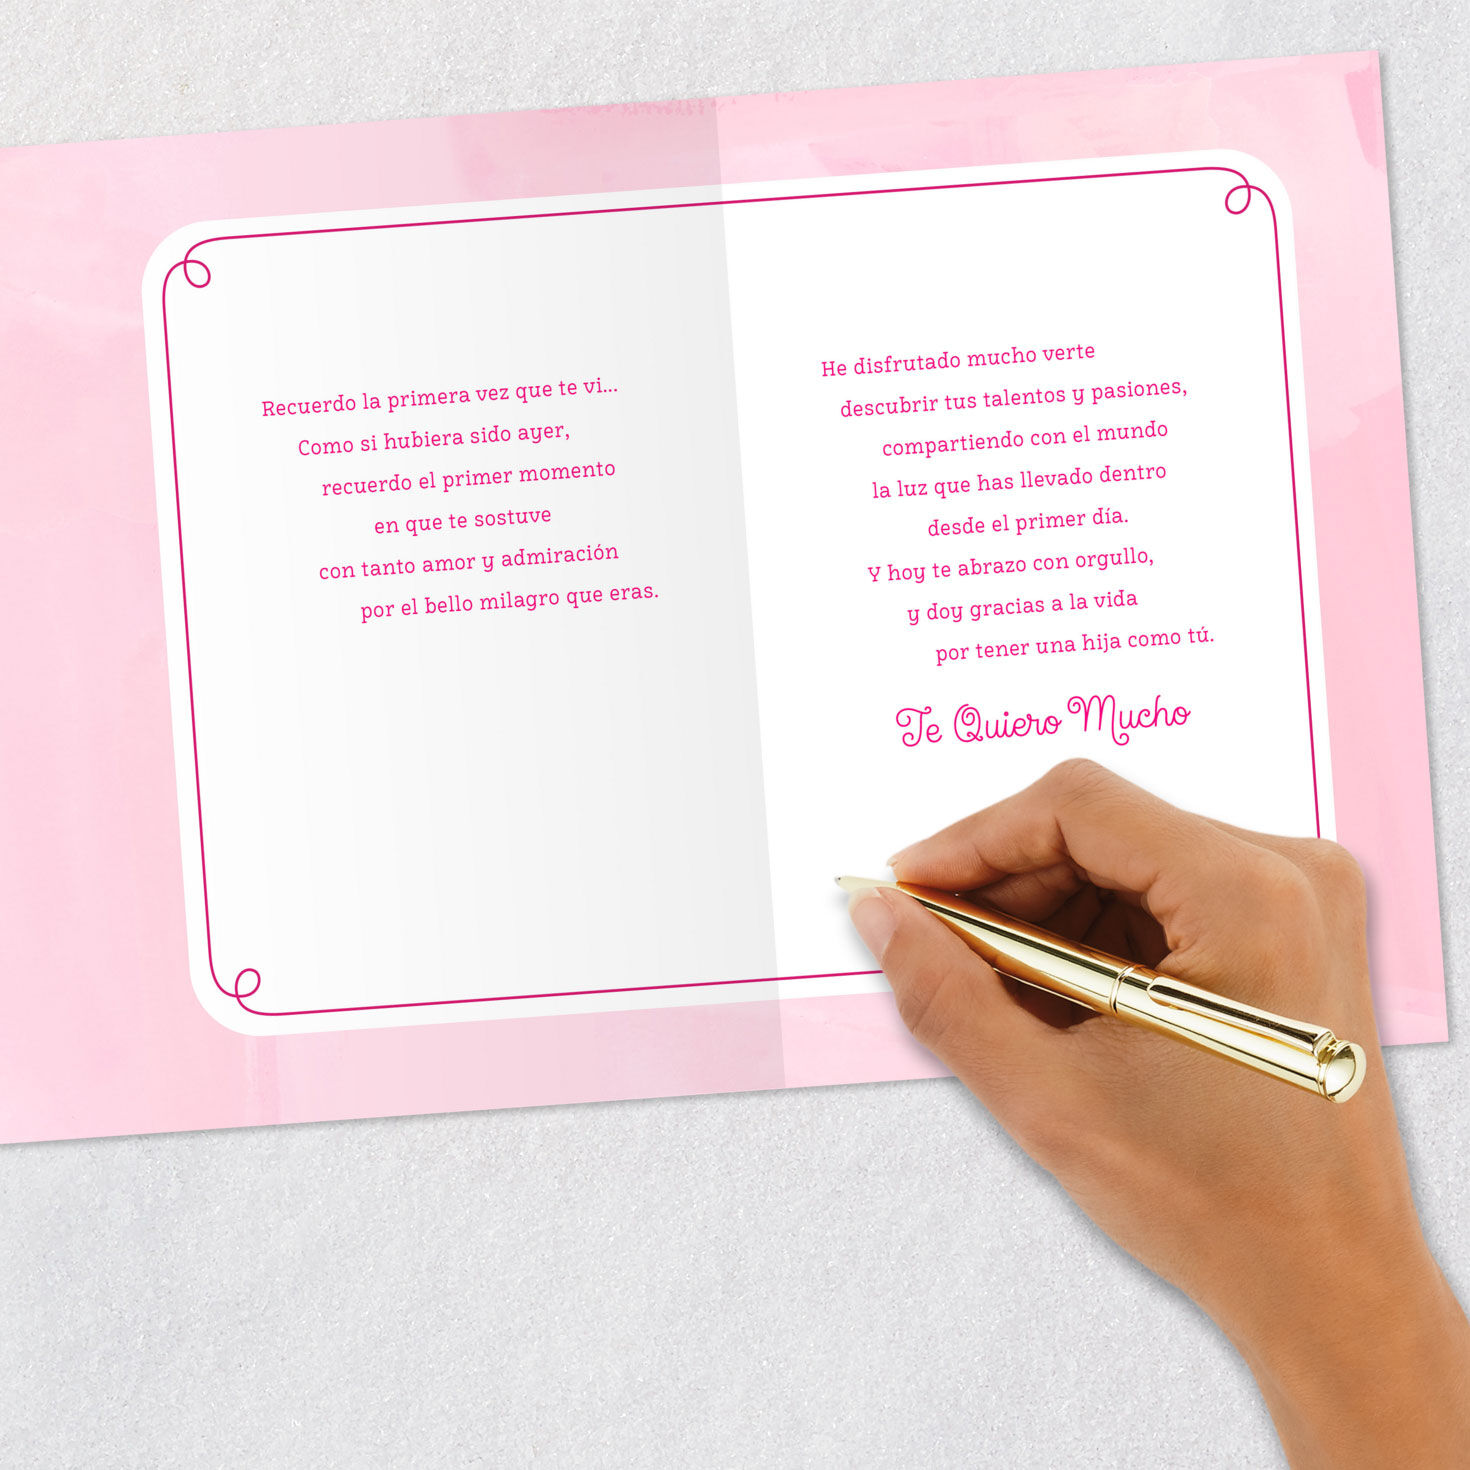 Recuerdo la primera vez que te vi...
Como si hubiera sido ayer,
recuerdo el primer momento
en que te sostuve
con tanto amor y admiración
por el bello milagro que eras.
He disfrutado mucho verte
descubrir tus talentos y pasiones,
compartiendo con el mundo
la luz que has llevado dentro
desde el primer día.
Y hoy te abrazo con orgullo,
y doy gracias a la vida
por tener una hija como tú.
Te Quiero Mucho